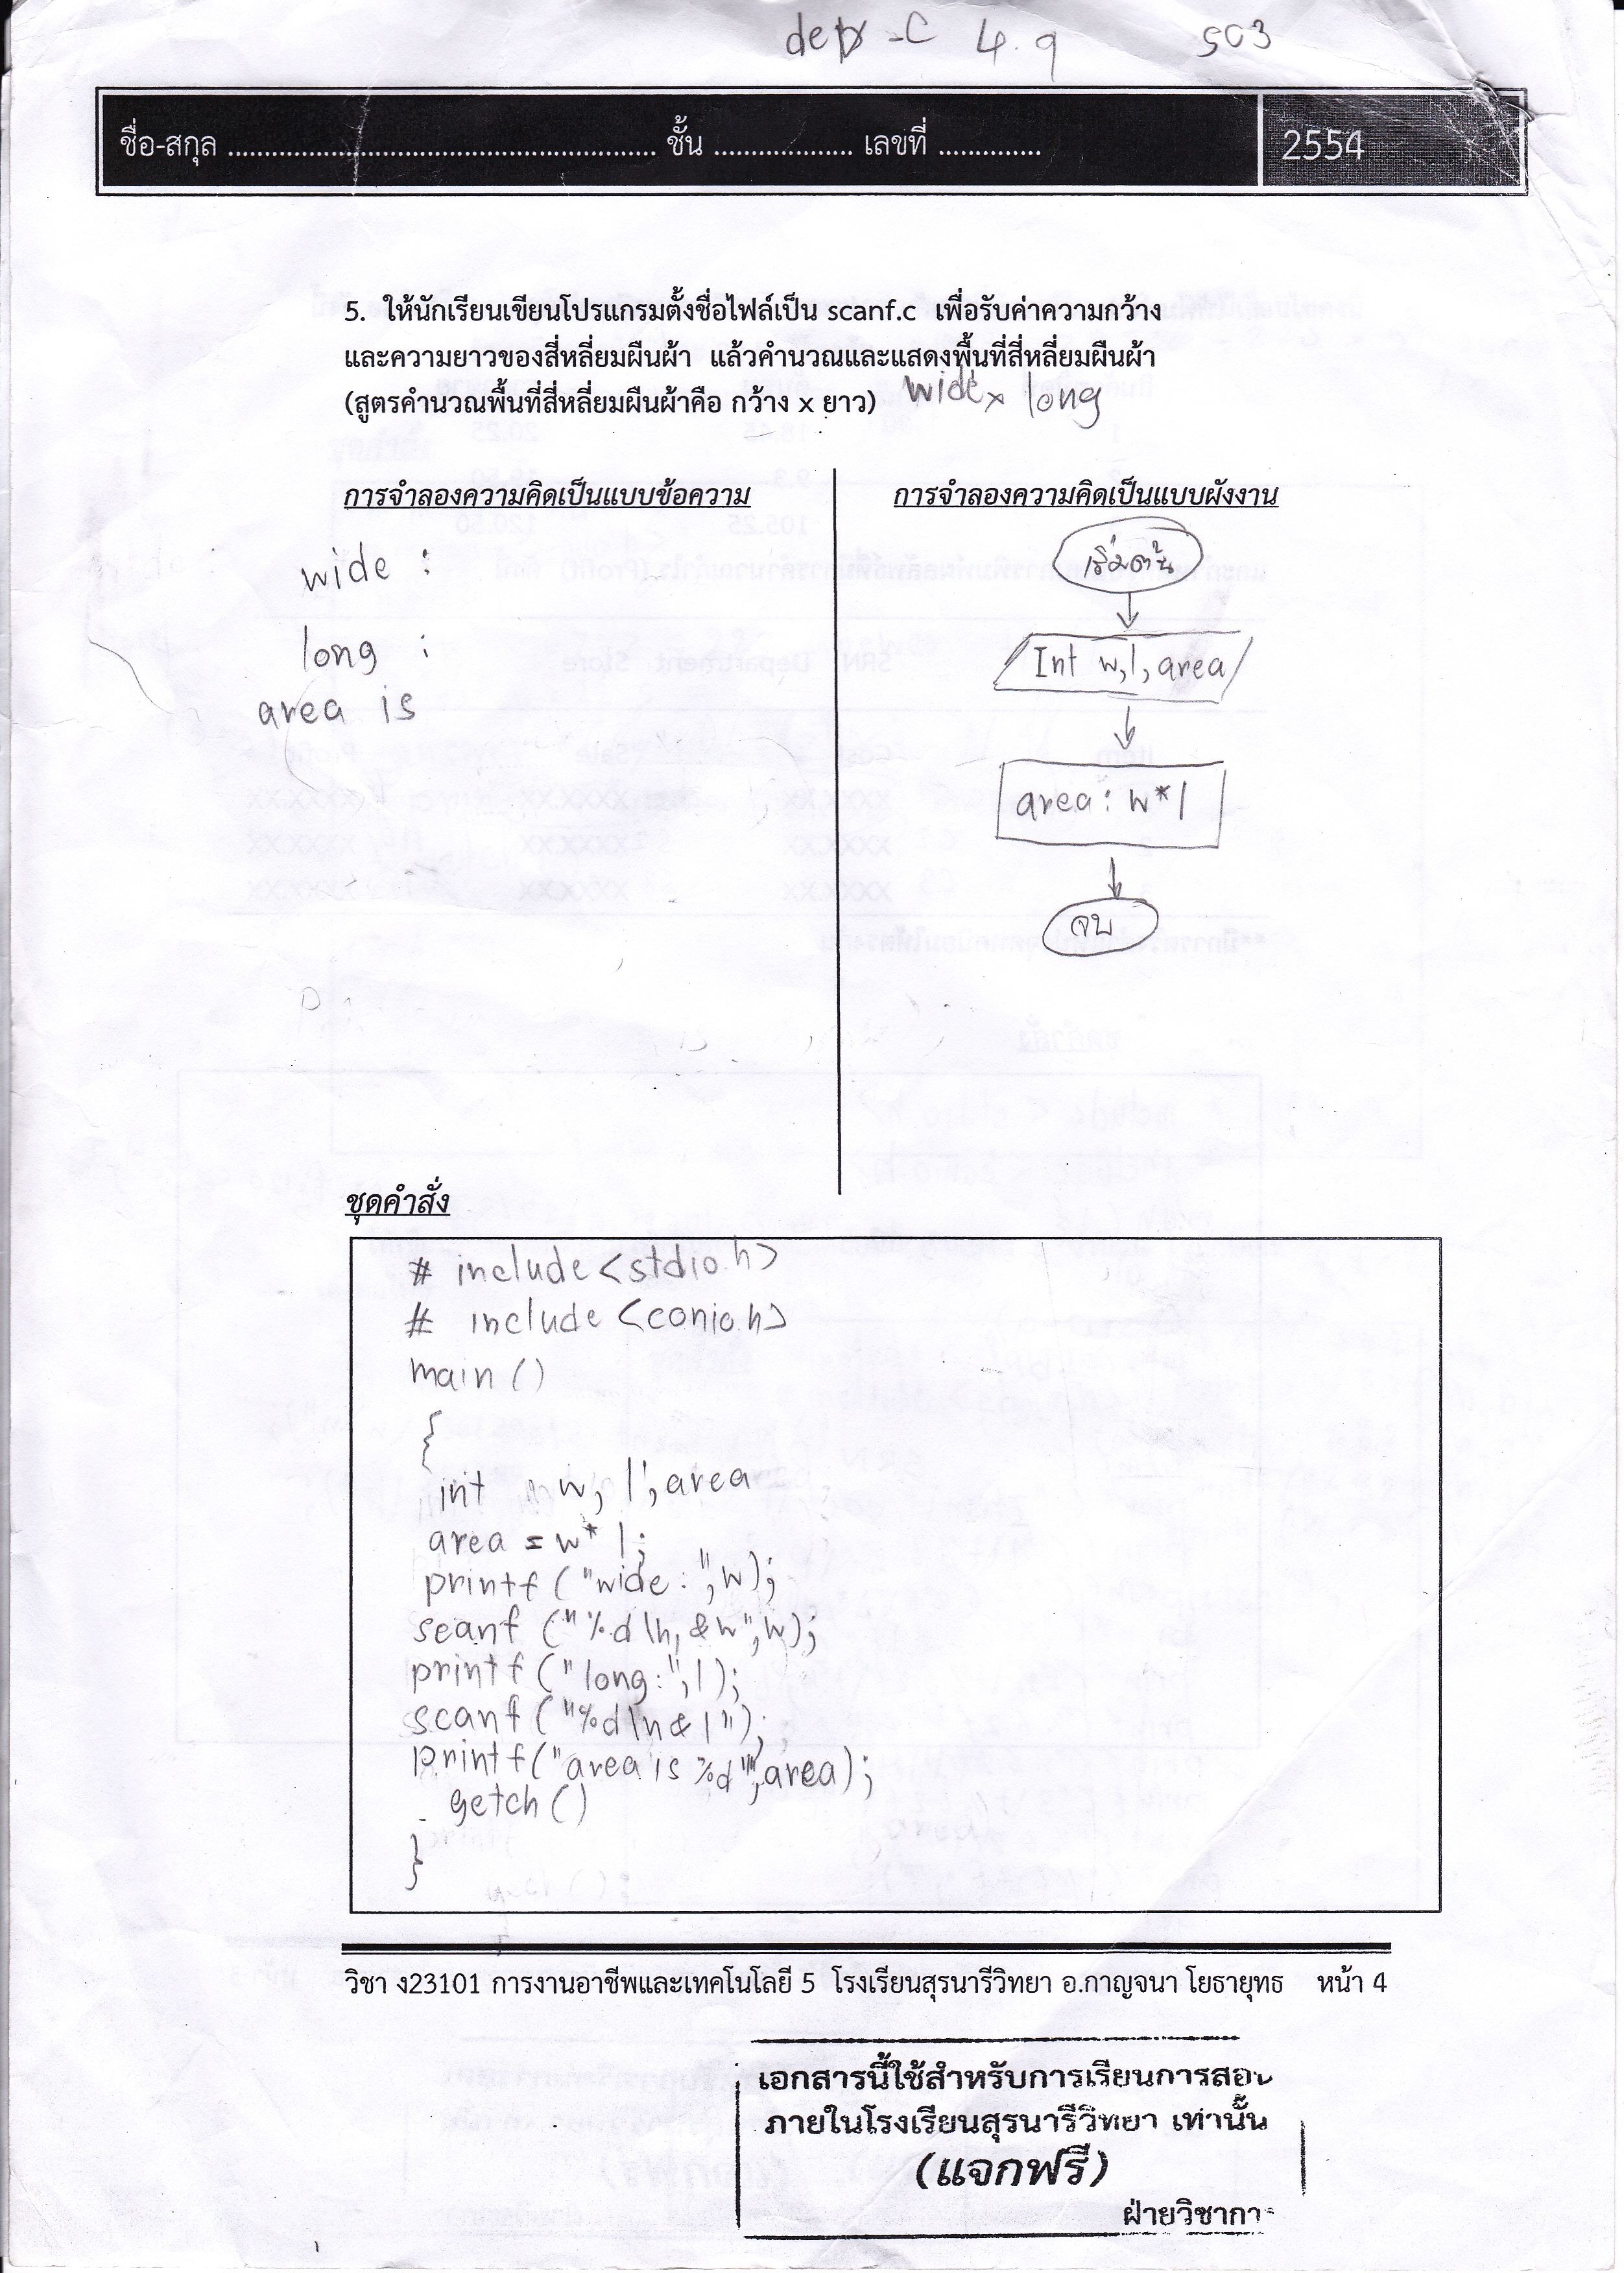 dev -C 4.9 503
ชื่อ-สกุล ........................................................... ชั้น ................... เลขที่ .............. 2554
5. ให้นักเรียนเขียนโปรแกรมตั้งชื่อไฟล์เป็น scanf.c เพื่อรับค่าความกว้าง
และความยาวของสี่หลี่ยมผืนผ้า แล้วคำนวณและแสดงพื้นที่สี่หลี่ยมผืนผ้า
(สูตรคำนวณพื้นที่สี่หลี่ยมผืนผ้าคือ กว้าง x ยาว) wide x long
การจำลองความคิดเป็นแบบข้อความ
wide :
long :
area is
การจำลองความคิดเป็นแบบผังงาน
เริ่มต้น
Int w, l, area
area : w*l
จบ
ชุดคำสั่ง
# include <stdio.h>
# include <conio.h>
main ()
{
int w, l, area
area = w* l;
printf ("wide :", w);
scanf ("%d\n, &w", w);
printf ("long:", l);
scanf ("%d\n & l");
printf("area is %d", area);
getch ()
}
วิชา ง23101 การงานอาชีพและเทคโนโลยี 5 โรงเรียนสุรนารีวิทยา อ.กาญจนา โยธายุทธ หน้า 4
เอกสารนี้ใช้สำหรับการเรียนการสอน
ภายในโรงเรียนสุรนารีวิทยา เท่านั้น
(แจกฟรี)
ฝ่ายวิชาการ